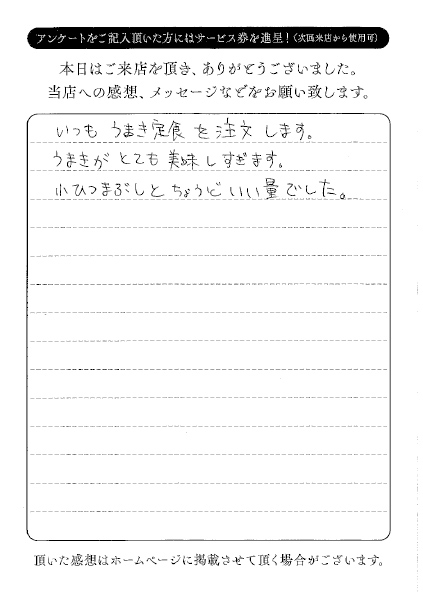 アンケートをご記入頂いた方にはサービス券を進呈！(次回来店から使用可)
本日はご来店を頂き、ありがとうございました。
当店への感想、メッセージなどをお願い致します。
いつも うまき定食 を 注文 します。
うまきが とても 美味しすぎます。
小ひつまぶしと ちょうど いい量でした。
頂いた感想はホームページに掲載させて頂く場合がございます。